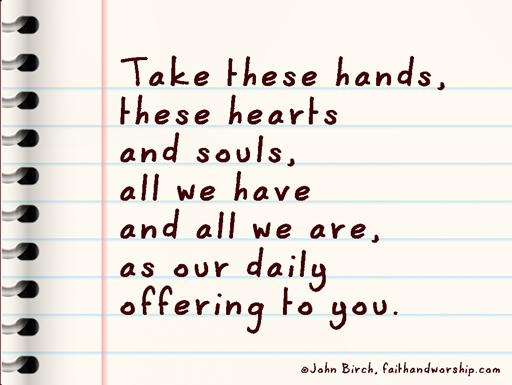 Take these hands,
these hearts
and souls,
all we have
and all we are,
as our daily
offering to you.
©John Birch, faithandworship.com